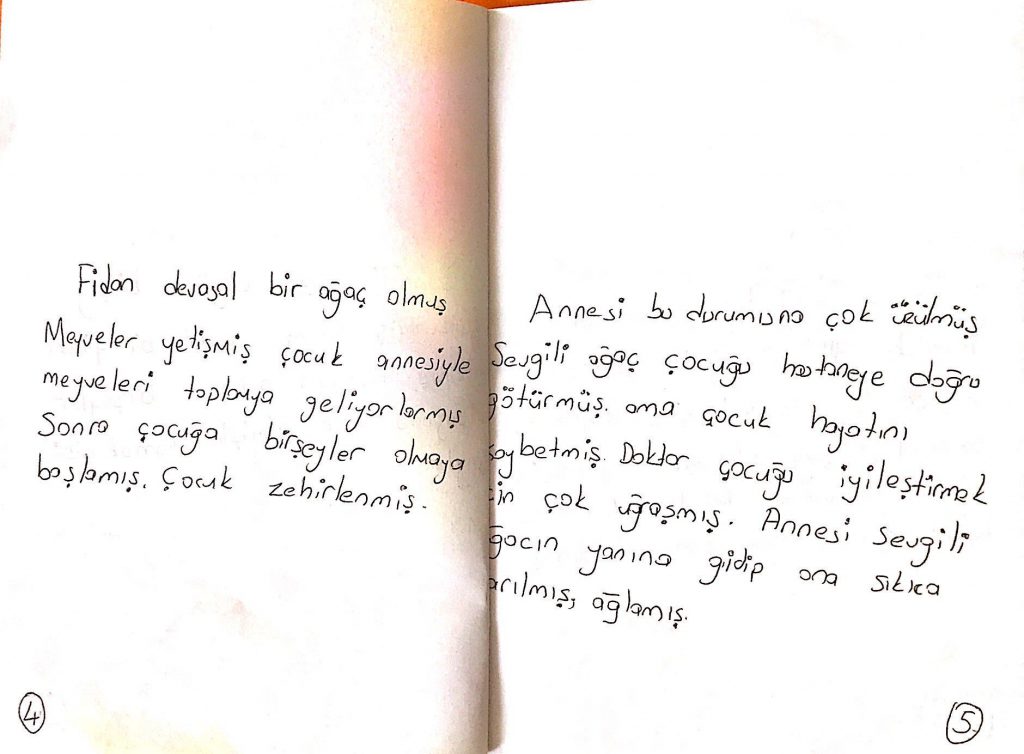 Fidan devasal bir ağaç olmuş
Meyveler yetişmiş çocuk annesiyle
meyveleri toplamaya geliyorlarmış
Sonra çocuğa birşeyler olmaya
başlamış. Çocuk zehirlenmiş.
4
Annesi bu durumuna çok üzülmüş
Sevgili ağaç çocuğu hastaneye doğru
götürmüş. ama çocuk hayatını
aybetmiş. Doktor çocuğu iyileştirmek
çin çok uğraşmış. Annesi sevgili
ğacın yanına gidip ona sıkıca
arılmış, ağlamış.
5